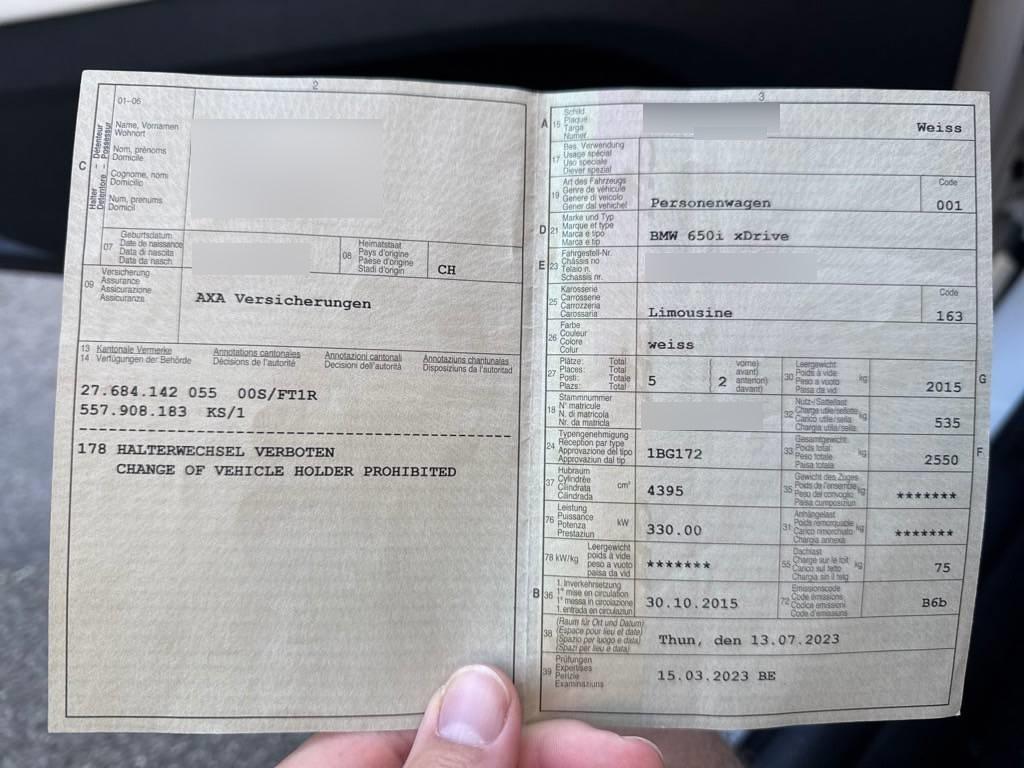 2
01-06
Name, Vornamen
Wohnort
Nom, prénoms
Domicile
Cognome, nomi
Domicilio
Num, prenums
Domicil
C
Halter – Détenteur
Detentore – Possessur
07
Geburtsdatum
Date de naissance
Data di nascita
Data da nasch.
08
Heimatstaat
Pays d'origine
Paese d'origine
Stadi d'origin
CH
09
Versicherung
Assurance
Assicurazione
Assicuranza
AXA Versicherungen
13 Kantonale Vermerke Annotations cantonales Annotazioni cantonali Annotaziuns chantunalas
14 Verfügungen der Behörde Décisions de l'autorité Decisioni dell'autorità Disposiziuns da l'autoritad
27.684.142 055 00S/FT1R
557.908.183 KS/1
178 HALTERWECHSEL VERBOTEN
CHANGE OF VEHICLE HOLDER PROHIBITED
3
A 15
Schild
Plaque
Targa
Numer
Weiss
17
Bes. Verwendung
Usage spécial
Uso speciale
Diever spezial
19
Art des Fahrzeugs
Genre de véhicule
Genere di veicolo
Gener dal vehichel
Personenwagen
Code
001
D 21
Marke und Typ
Marque et type
Marca e tipo
Marca e tip
BMW 650i xDrive
E 23
Fahrgestell-Nr.
Châssis no
Telaio n.
Schassis nr.
25
Karosserie
Carrosserie
Carrozzeria
Carossaria
Limousine
Code
163
26
Farbe
Couleur
Colore
Colur
weiss
27
Plätze: Total
Places: Total
Posti: Totale
Plazs: Total
5
2
vorne)
avant)
anteriori)
davant)
30
Leergewicht
Poids à vide
Peso a vuoto
Paisa da vid
kg
2015
G
18
Stammnummer
N° matricule
N. di matricola
Nr. da matricla
32
Nutz-/Sattellast
Charge utile/sellette
Carico utile/sella
Chargia utila/sella
kg
535
24
Typengenehmigung
Réception par type
Approvazione del tipo
Approvaziun dal tip
1BG172
33
Gesamtgewicht
Poids total
Peso totale
Paisa totala
kg
2550
F
37
Hubraum
Cylindrée
Cilindrata
Cilindrada
cm³
4395
35
Gewicht des Zuges
Poids de l'ensemble
Peso del convoglio
Paisa cumposiziun
kg
*******
76
Leistung
Puissance
Potenza
Prestaziun
kW
330.00
31
Anhängelast
Poids remorquable
Carico rimorchiato
Chargia annexa
kg
*******
78 kW/kg
Leergewicht
poids à vide
peso a vuoto
paisa da vid
*******
55
Dachlast
Charge sur le toit
Carico sul tetto
Chargia sin il tetg
kg
75
B 36
1. Inverkehrsetzung
1re mise en circulation
1a messa in circolazione
1. entrada en circulaziun
30.10.2015
72
Emissionscode
Code émissions
Codice emissioni
Code d'emissiuns
B6b
38
(Raum für Ort und Datum)
(Espace pour lieu et date)
(Spazio per luogo e data)
(Spazi per lieu e data)
Thun, den 13.07.2023
39
Prüfungen
Expertises
Perizie
Examinaziuns
15.03.2023 BE